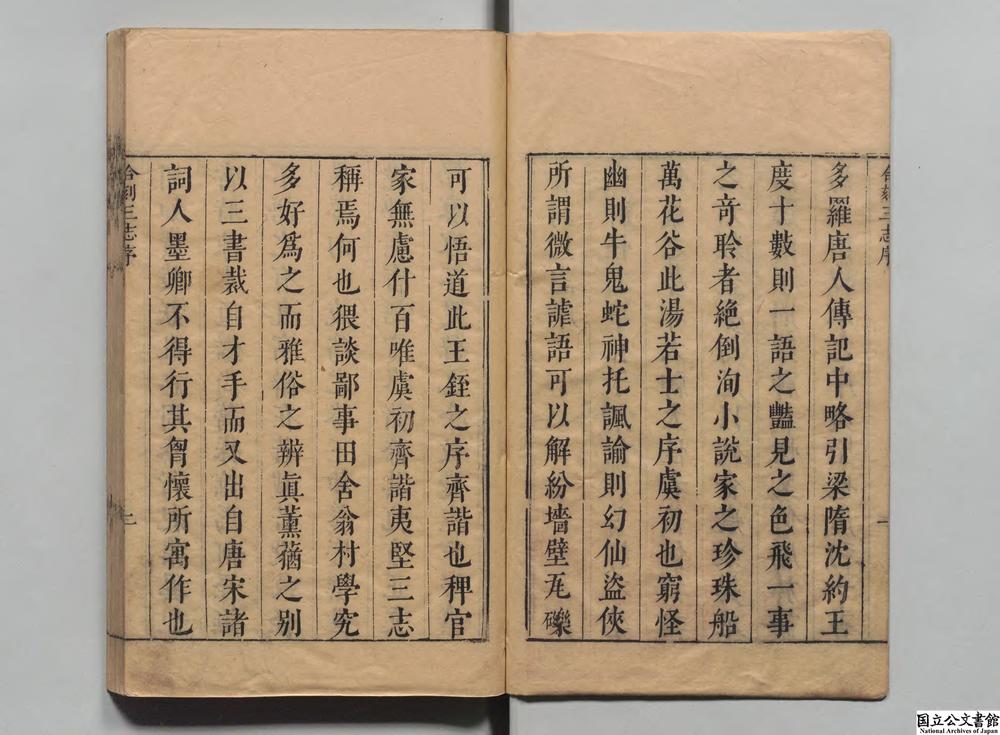 合刻三志序
多羅唐人傳記中略引梁隋沈約王
度十數則一語之豔見之色飛一事
之竒聆者絶倒洵小說家之珍珠船
萬花谷此湯若士之序虞初也窮怪
幽則牛鬼蛇神托諷諭則幻仙盜俠
所謂微言謔語可以解紛墻壁瓦礫
可以悟道此王銍之序齊諧也稗官
家無慮什百唯虞初齊諧夷堅三志
稱焉何也猥談鄙事田舍翁村學究
多好爲之而雅俗之辨眞薰蕕之别
以三書裁自才手而又出自唐宋諸
詞人墨卿不得行其胷懷所寓作也
合刻三志序
二
国立公文書館
National Archives of Japan